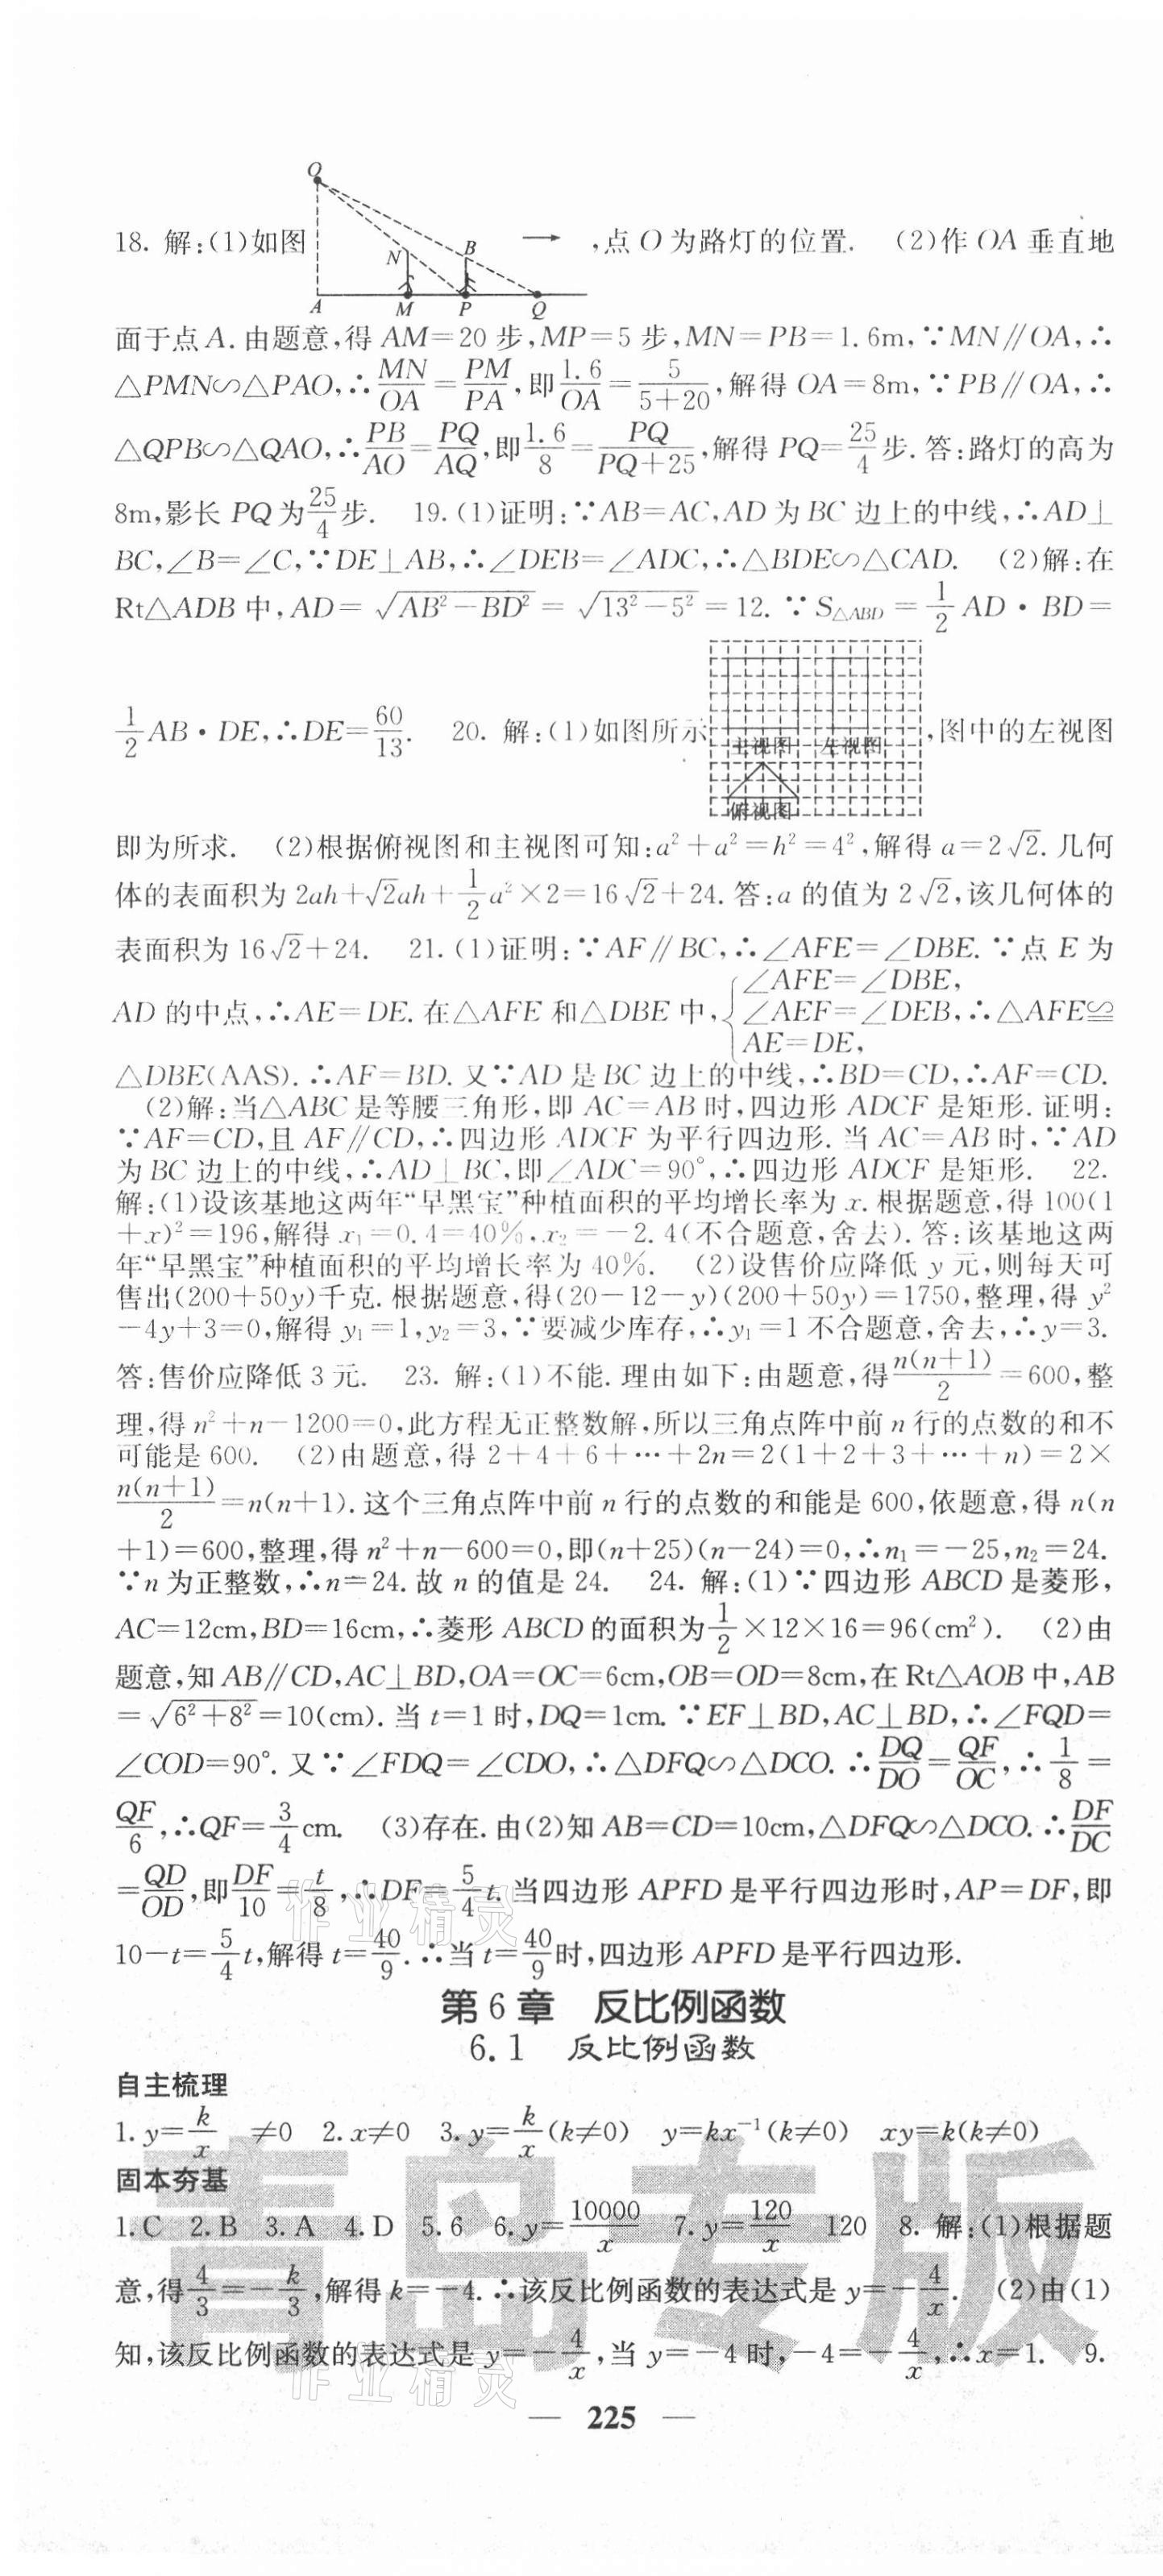 O
N
B
A
M
P
Q
18. 解:(1)如图 ,点 O 为路灯的位置. (2)作 OA 垂直地
面于点 A. 由题意,得 AM=20 步,MP=5 步,MN=PB=1.6m,∵MN∥OA,∴
△PMN∽△PAO,∴MN/OA=PM/PA,即1.6/OA=5/(5+20),解得 OA=8m,∵PB∥OA,∴
△QPB∽△QAO,∴PB/AO=PQ/AQ,即1.6/8=PQ/(PQ+25),解得 PQ=25/4步. 答:路灯的高为
8m,影长 PQ 为25/4步. 19. (1)证明:∵AB=AC,AD 为 BC 边上的中线,∴AD⊥
BC,∠B=∠C,∵DE⊥AB,∴∠DEB=∠ADC,∴△BDE∽△CAD. (2)解:在
Rt△ADB 中,AD=√(AB²-BD²)=√(13²-5²)=12. ∵S△ABD=1/2 AD·BD=
1/2 AB·DE,∴DE=60/13. 20. 解:(1)如图所示 ,图中的左视图
主视图 左视图
俯视图
即为所求. (2)根据俯视图和主视图可知:a²+a²=h²=4²,解得 a=2√2. 几何
体的表面积为 2ah+√2ah+1/2 a²×2=16√2+24. 答:a 的值为 2√2,该几何体的
表面积为 16√2+24. 21. (1)证明:∵AF∥BC,∴∠AFE=∠DBE. ∵点 E 为
AD 的中点,∴AE=DE. 在△AFE 和△DBE 中,{∠AFE=∠DBE,
∠AEF=∠DEB,∴△AFE≌
AE=DE,
△DBE(AAS). ∴AF=BD. 又∵AD 是 BC 边上的中线,∴BD=CD,∴AF=CD.
(2)解:当△ABC 是等腰三角形,即 AC=AB 时,四边形 ADCF 是矩形. 证明:
∵AF=CD,且 AF∥CD,∴四边形 ADCF 为平行四边形. 当 AC=AB 时,∵AD
为 BC 边上的中线,∴AD⊥BC,即∠ADC=90°,∴四边形 ADCF 是矩形. 22.
解:(1)设该基地这两年“早黑宝”种植面积的平均增长率为 x. 根据题意,得 100(1
+x)²=196,解得 x₁=0.4=40%,x₂=-2.4(不合题意,舍去). 答:该基地这两
年“早黑宝”种植面积的平均增长率为 40%. (2)设售价应降低 y 元,则每天可
售出(200+50y)千克. 根据题意,得(20-12-y)(200+50y)=1750,整理,得 y²
-4y+3=0,解得 y₁=1,y₂=3,∵要减少库存,∴y₁=1 不合题意,舍去,∴y=3.
答:售价应降低 3 元. 23. 解:(1)不能. 理由如下:由题意,得n(n+1)/2=600,整
理,得 n²+n-1200=0,此方程无正整数解,所以三角点阵中前 n 行的点数的和不
可能是 600. (2)由题意,得 2+4+6+…+2n=2(1+2+3+…+n)=2×
n(n+1)/2=n(n+1). 这个三角点阵中前 n 行的点数的和能是 600,依题意,得 n(n
+1)=600,整理,得 n²+n-600=0,即(n+25)(n-24)=0,∴n₁=-25,n₂=24.
∵n 为正整数,∴n=24. 故 n 的值是 24. 24. 解:(1)∵四边形 ABCD 是菱形,
AC=12cm,BD=16cm,∴菱形 ABCD 的面积为1/2×12×16=96(cm²). (2)由
题意,知 AB∥CD,AC⊥BD,OA=OC=6cm,OB=OD=8cm,在 Rt△AOB 中,AB
=√(6²+8²)=10(cm). 当 t=1 时,DQ=1cm. ∵EF⊥BD,AC⊥BD,∴∠FQD=
∠COD=90°. 又∵∠FDQ=∠CDO,∴△DFQ∽△DCO. ∴DQ/DO=QF/OC,∴1/8=
QF/6,∴QF=3/4cm. (3)存在. 由(2)知 AB=CD=10cm,△DFQ∽△DCO. ∴DF/DC
=QD/OD,即DF/10=t/8,∴DF=5/4 t. 当四边形 APFD 是平行四边形时,AP=DF,即
10-t=5/4 t,解得 t=40/9. ∴当 t=40/9时,四边形 APFD 是平行四边形.
作业精灵
第 6 章 反比例函数
6.1 反比例函数
自主梳理
1. y=k/x ≠0 2. x≠0 3. y=k/x(k≠0) y=kx⁻¹(k≠0) xy=k(k≠0)
固本夯基
1. C 2. B 3. A 4. D 5. 6 6. y=10000/x 7. y=120/x 120 8. 解:(1)根据题
意,得4/3=-k/3,解得 k=-4. ∴该反比例函数的表达式是 y=-4/x. (2)由(1)
知,该反比例函数的表达式是 y=-4/x,当 y=-4 时,-4=-4/x,∴x=1. 9.
青岛专版
作业精灵
— 225 —